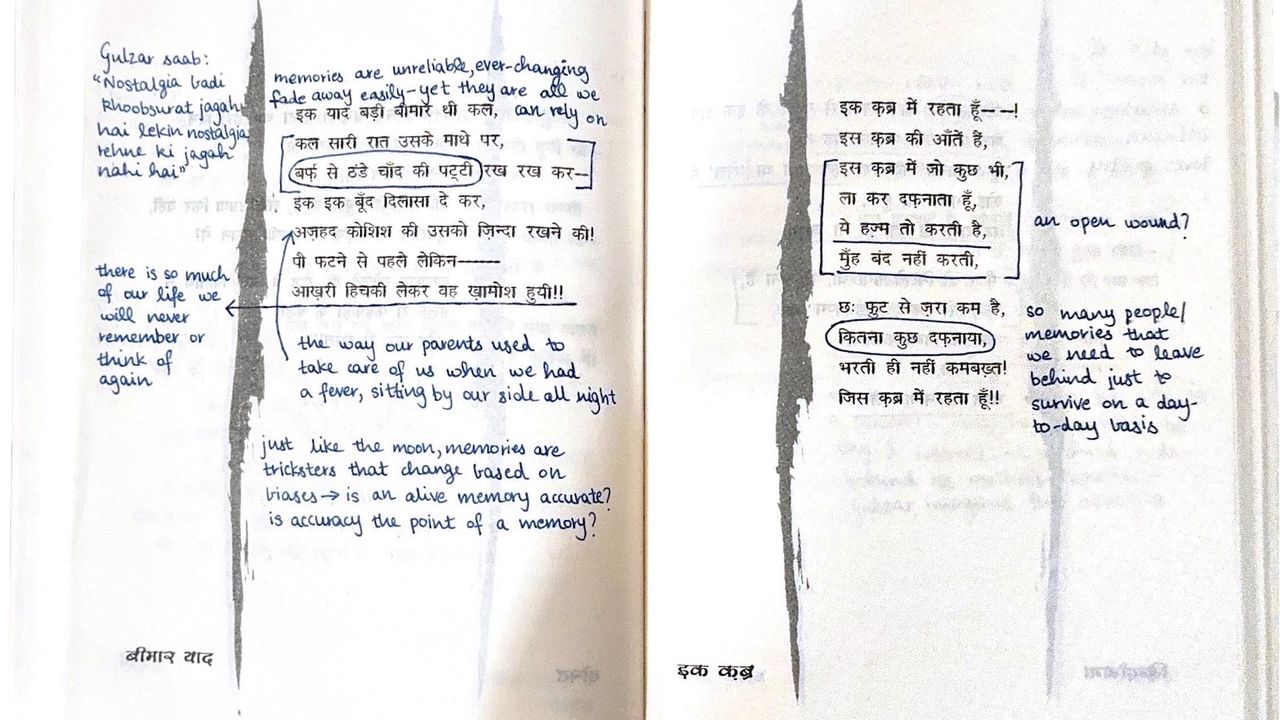 Gulzar saab:
"Nostalgia badi
khoobsurat jagah
hai lekin nostalgia
rehne ki jagah
nahi hai"
memories are unreliable, ever-changing
fade away easily - yet they are all we
can rely on
इक याद बड़ी बीमार थी कल,
कल सारी रात उसके माथे पर,
बर्फ़ से ठंडे चाँद की पट्टी रख रख कर—
इक इक बूँद दिलासा दे कर,
अज़हद कोशिश की उसको ज़िन्दा रखने की!
पौ फटने से पहले लेकिन———
आख़री हिचकी लेकर वह ख़ामोश हुयी!!
there is so much
of our life we
will never
remember or
think of
again
the way our parents used to
take care of us when we had
a fever, sitting by our side all night
just like the moon, memories are
tricksters that change based on
biases → is an alive memory accurate?
is accuracy the point of a memory?
बीमार याद
इक कब्र में रहता हूँ——!
इस क़ब्र की आँतें हैं,
इस क़ब्र में जो कुछ भी,
ला कर दफ़नाता हूँ,
ये हज़्म तो करती है,
मुँह बंद नहीं करती,
an open wound?
छः फ़ुट से ज़रा कम है,
कितना कुछ दफ़नाया,
भरती ही नहीं कमबख़्त!
जिस क़ब्र में रहता हूँ!!
so many people/
memories that
we need to leave
behind just to
survive on a day-
to-day basis
इक क़ब्र